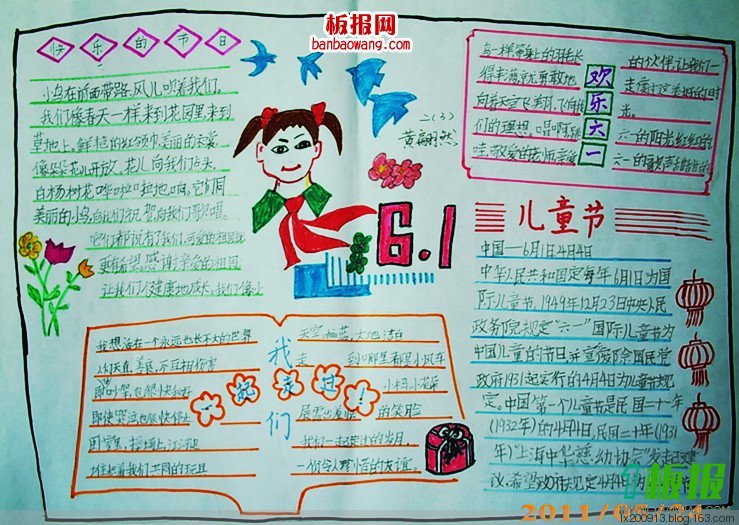 板报网
banbaowang.com
快乐的节日
小鸟在前面带路,风儿吹着我们,
我们像春天一样,来到花园里,来到
草地上,鲜艳的红领巾,美丽的衣裳,
像朵朵花儿开放,花儿向我们点头,
白杨树花哗啦啦地响,它们同
美丽的小鸟,向我们祝贺,向我们歌唱。
它们都说有了我们,可爱的祖国就
更有希望,感谢亲爱的祖国
让我们健康地成长,我们像小
二(3)
黄翩然
6.1
的伙伴,让我们一
欢乐六一
走度过这美好的日时
光。
六一的阳光
六一的歌声
儿童节
中国——6月1日4月4日
中华人民共和国定每年6月1日为国
际儿童节,1949年12月23日中央人民
政务院规定“六一”国际儿童节为
中国儿童的节日,并宣废国民党
政府1931起实行的4月4日为儿童节规
定。中国第一个儿童节是民国二十一年
(1932年)的4月4日,民国二十年(1931
年)上海中华慈幼协会发起建
议,希望政府规定4月4日为
我们一起走过!
我想活在一个永远也长不大的世界
人们天真,善良,不互相伤害
吵架,也很快和好
即使哭泣也很快停止
天空,湛蓝,大地,洁白
走到哪里都是小风车
的笑脸
我们一起走过的岁月,
板报
2011/05/
lx200913.blog.163.com